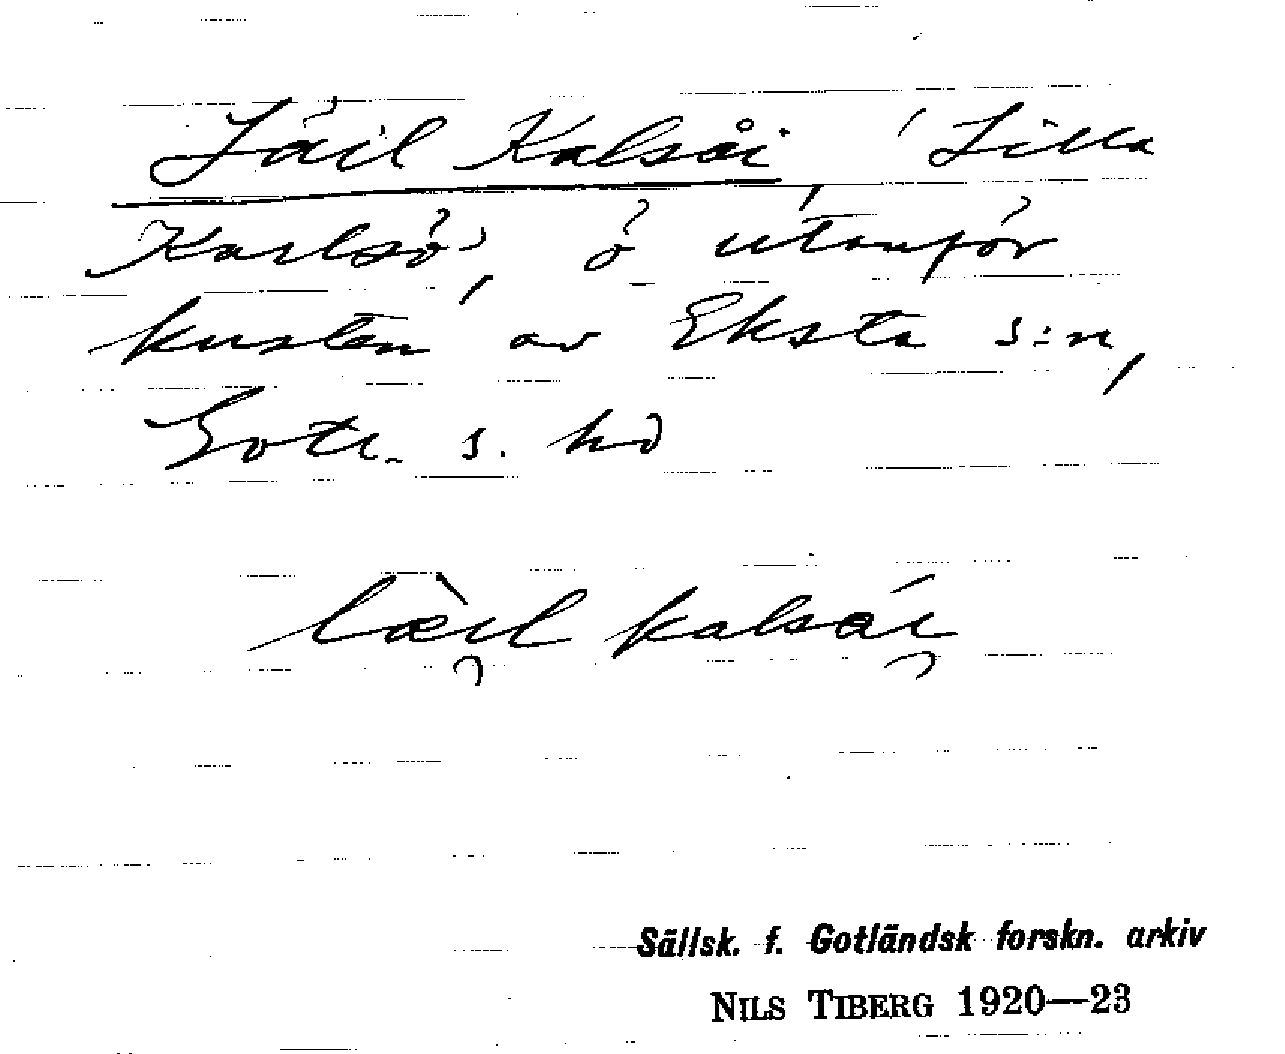 Läil Kalsåi 'Lilla
Karlsö', ö utanför
kusten av Eksta s:n,
Gotl. s. hd
læ̀i̯l kalsái̯
Sällsk. f. Gotländsk forskn. arkiv
NILS TIBERG 1920—23